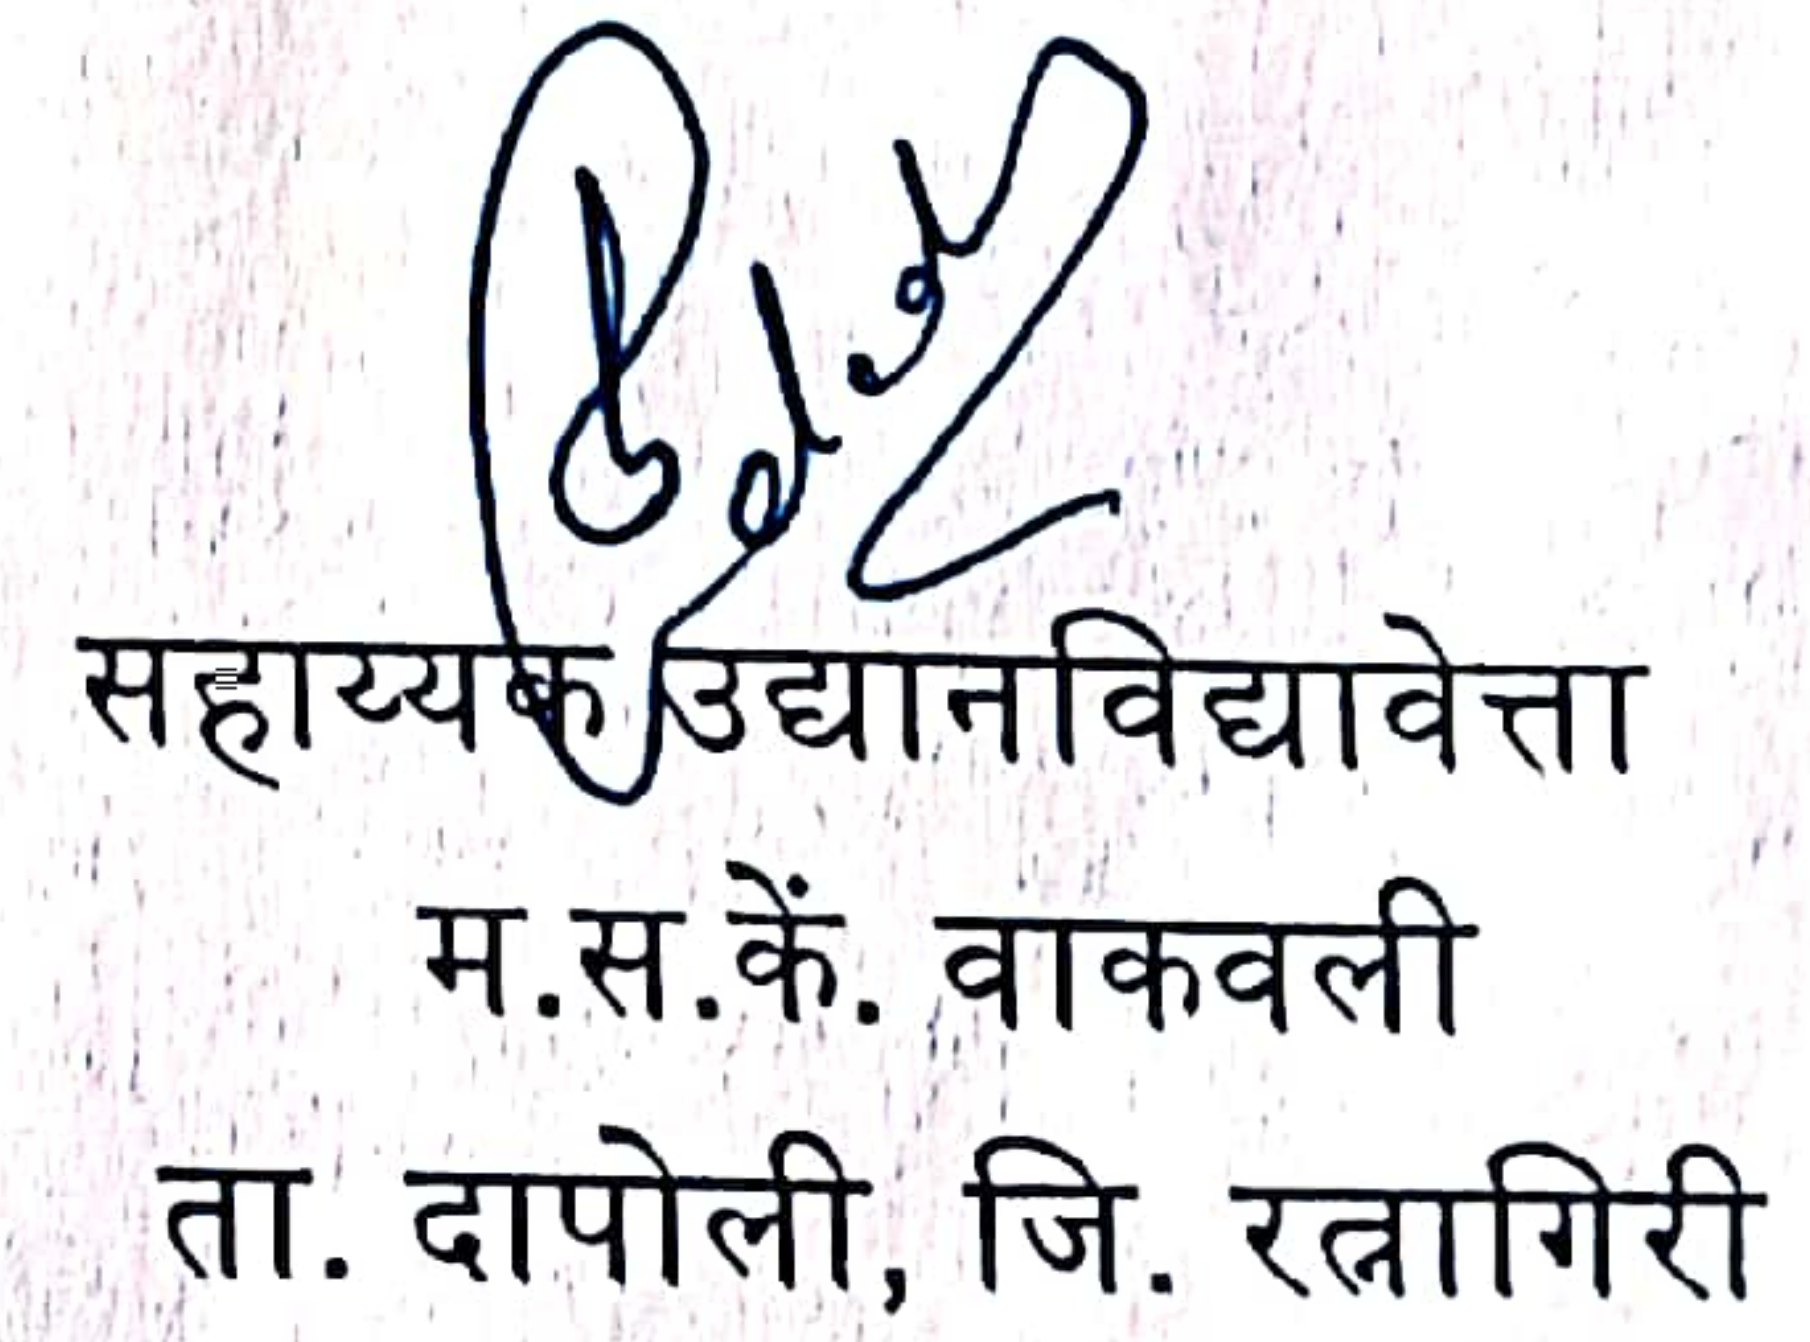 सहाय्यक उद्यानविद्यावेत्ता
म.स.कें. वाकवली
ता. दापोली, जि. रत्नागिरी